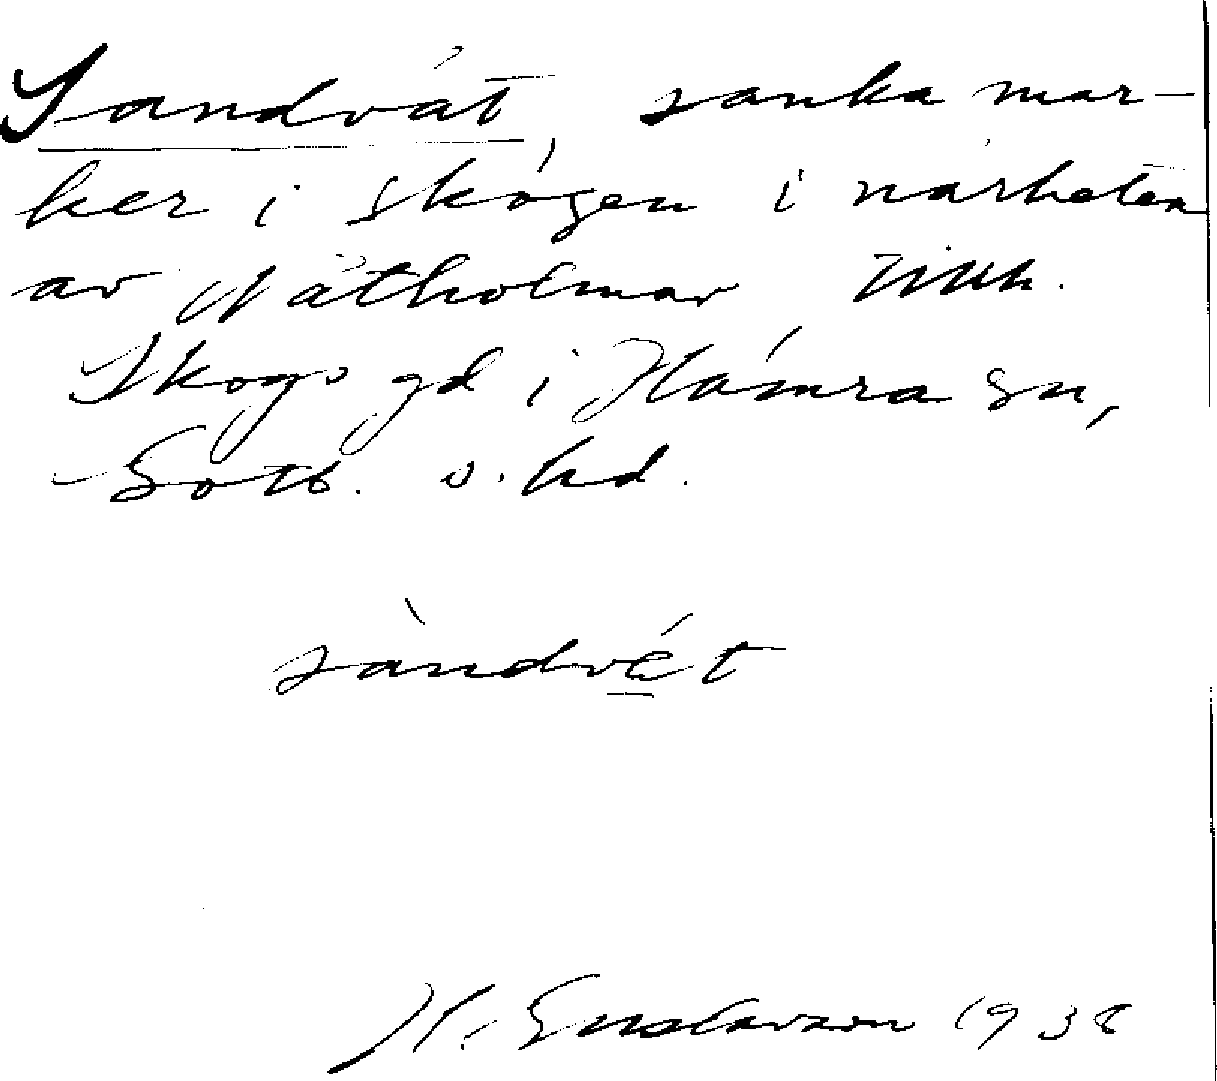 Sandvät, sanka mar-
ker i skogen i närheten
av Nätholmar tillh.
Skogs gd i Hamra sn,
Gotl. s. hd.
sàndvé̱t
H. Gustavson 1938